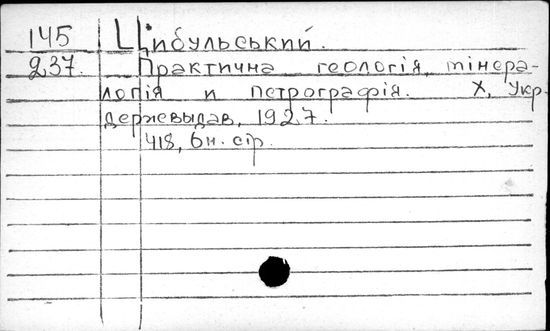 145 Цибульський.
237. Практична геологія, мінера-
логія и петрографія. Х, Укр.
держвыдав, 1927.
418, 6н. стр.